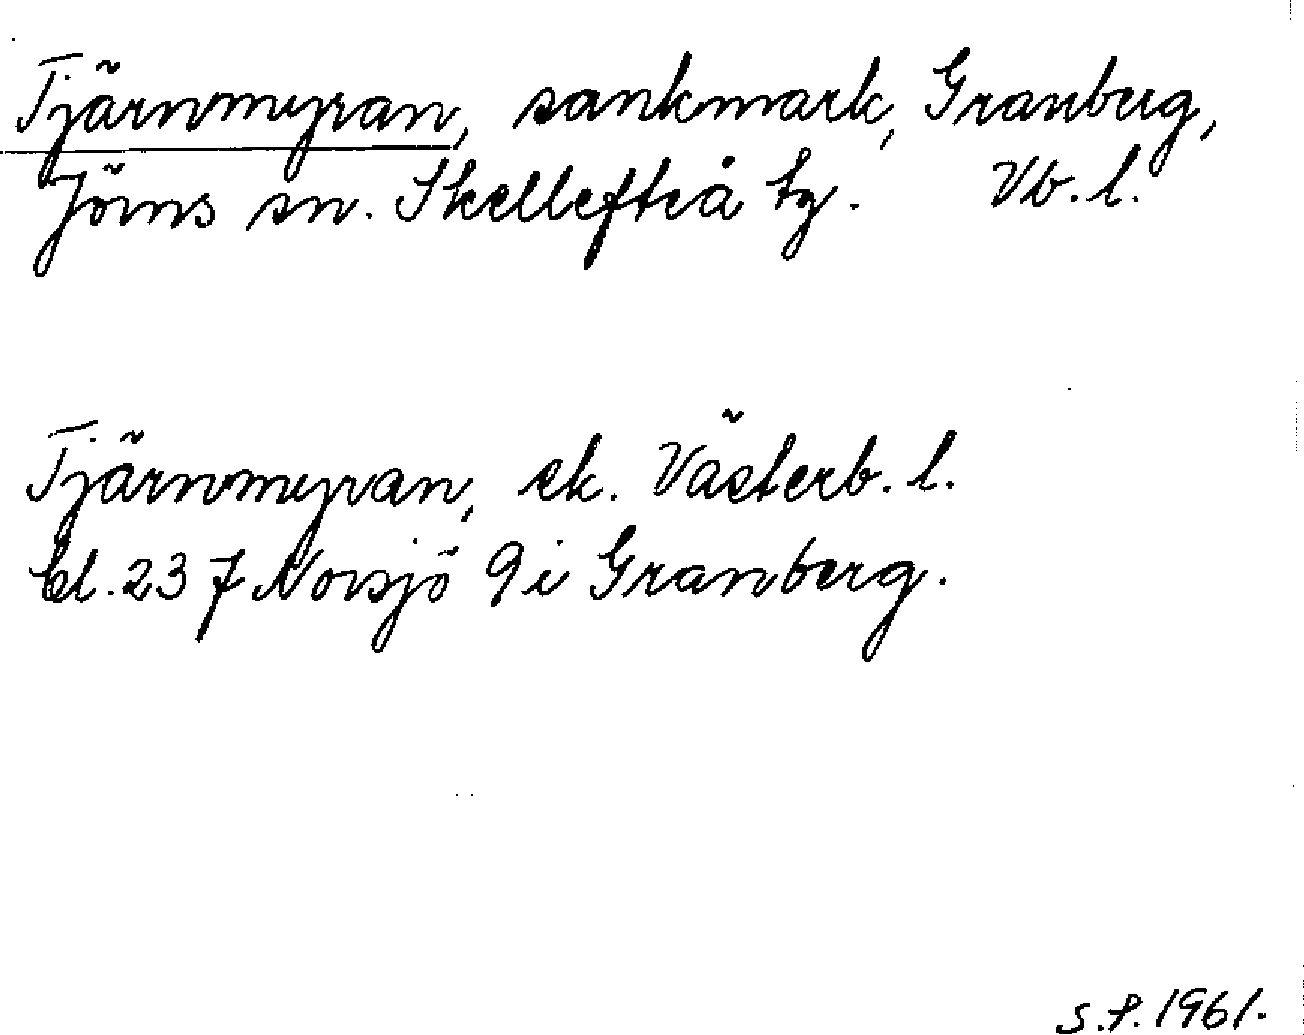 Tjärnmyran, sankmark, Granberg,
Jörns sn. Skellefteå tg. Vb. l.
Tjärnmyran, ek. Västerb. l.
bl. 23 J Norsjö 9 i Granberg.
S.P. 1961.